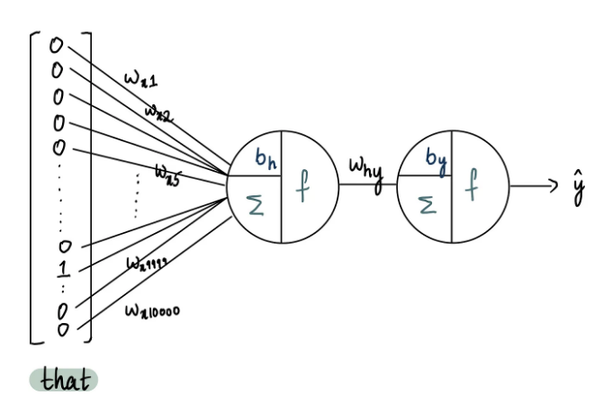 0
0
0
0
0
0
1
0
0
w_x1
w_x2
w_x5
w_x9999
w_x10000
b_h
Σ
f
w_hy
b_y
Σ
f
ŷ
that